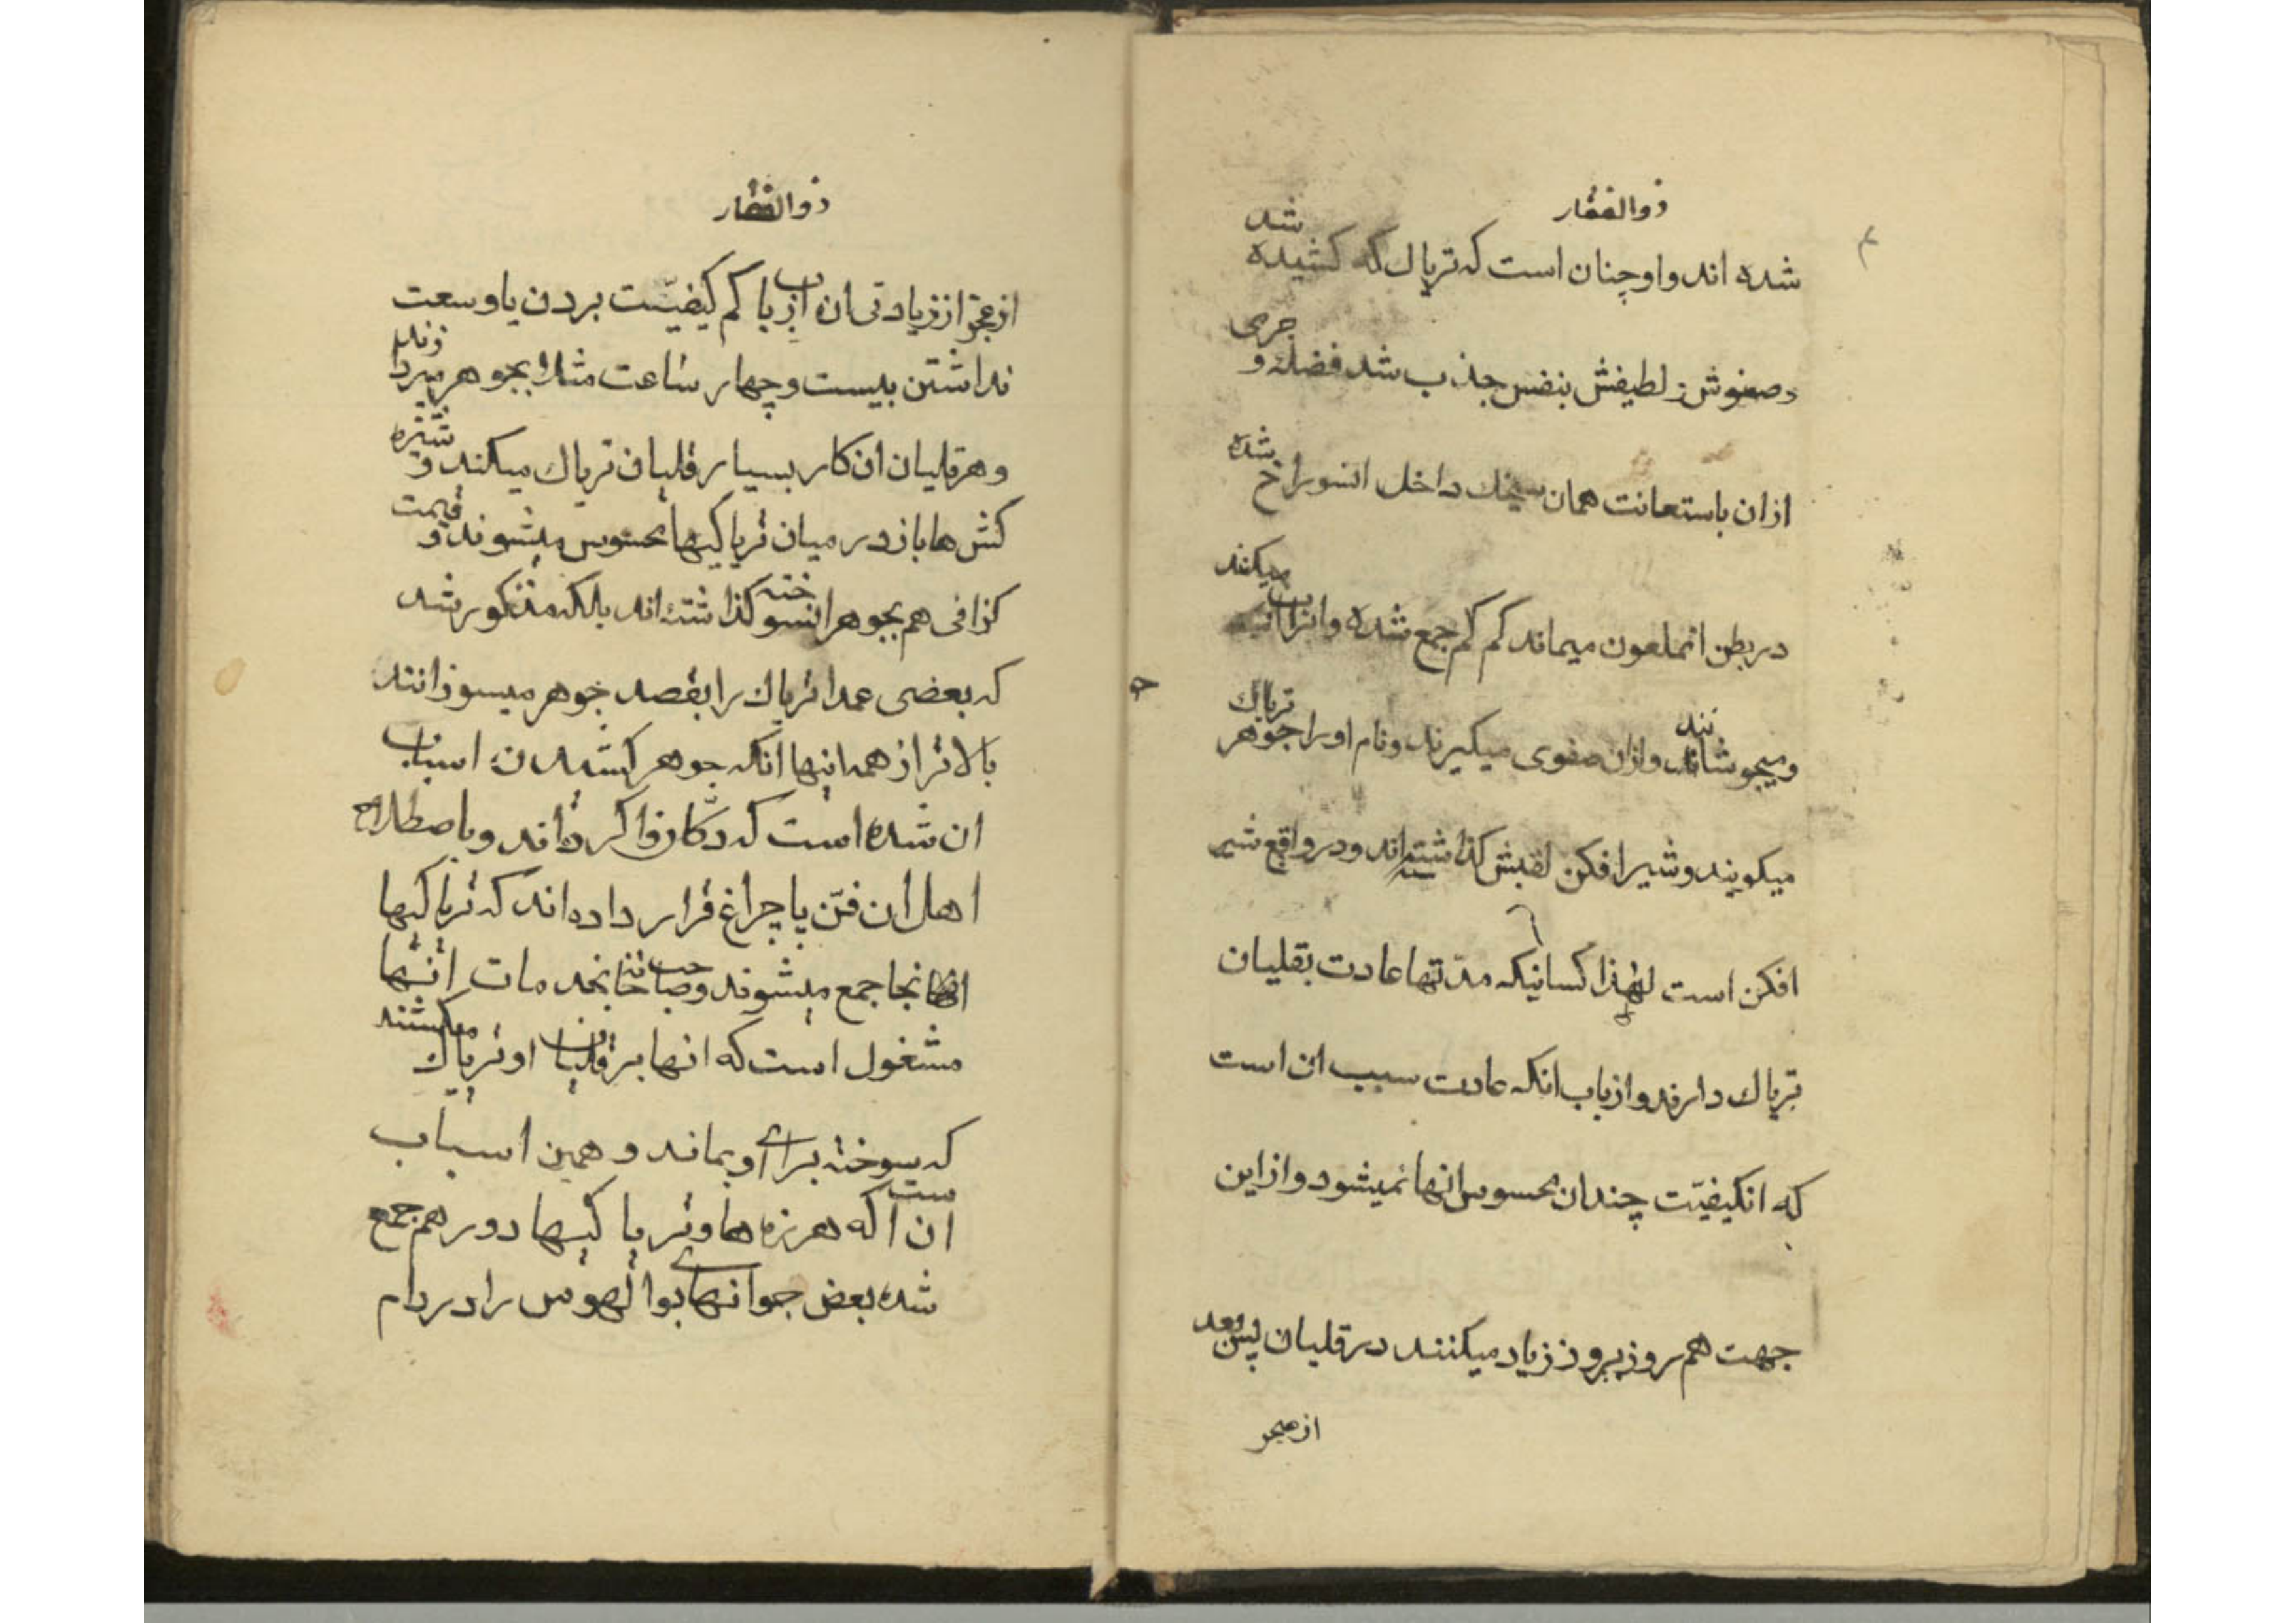 ذوالفقار
شده اند و او چنان است که تریاک که کشیده شد
و صفوش ز لطیفش بنفس جذب شد فضله و جرمی
ازان باستعانت همان سیخک داخل انسوراخ شده
در بطن انملعون میماند کم کم جمع شده وانرا میکنند
ومیجوشانند وازان صفوی میگیرند ونام او را جوهر تریاک
میکویند و شیر افکن لقبش کذاشته اند و در واقع شیر
افکن است لهذا کسانیکه مدتها عادت بقلیان
تریاک دارند و از باب انکه عادت سبب ان است
که انکیفیّت چندان محسوس انها نمیشود و از این
جهت هم روز بروز زیاد میکنند در قلیان پس بعد
از عجز
ذوالفقار
از عجز از زیادتی ان از باب کم کیفیّت بردن یا وسعت
نداشتن بیست و چهار ساعت مثلا بجوهر میزنند
و هر قلیان ان کار بسیار قلیان تریاک میکند و شیره
کش ها باز در میان تریاکیها محسوس میشوند و قیمت
کزافی هم بجوهر انسوخته کذاشته اند بلکه مذکور شد
که بعضی عمدا تریاک را بقصد جوهر میسوزانند
بالاتر از همه اینها انکه جوهر کشیدن اسباب
ان شده است که دکان وا کرده اند و باصطلاح
اهل ان فنّ پا چراغ قرار داده اند که تریاکیها
انجا جمع میشوند و صاحبخانه بخدمات انها
مشغول است که انها بر قلیان او تریاک میکشند
که سوخته برای او بماند و همین اسباب
ان است که هرزه ها و تریاکیها دور هم جمع
شده بعض جوانهای بوالهوس را در دام